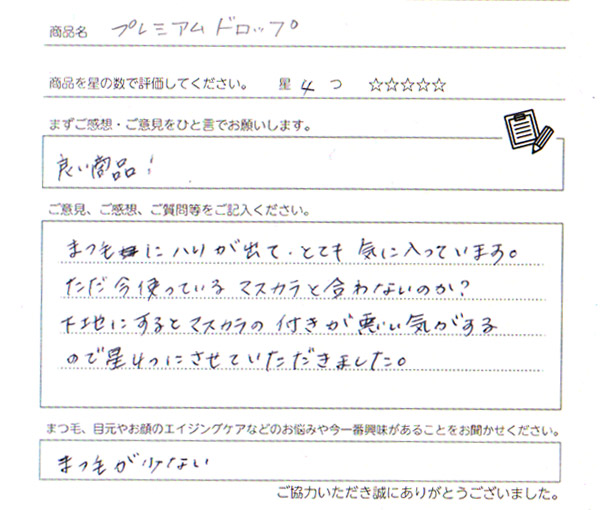 商品名 プレミアムドロップ
商品を星の数で評価してください。 星 4 つ ☆☆☆☆☆
まずご感想・ご意見をひと言でお願いします。
良い商品!
ご意見、ご感想、ご質問等をご記入ください。
まつ毛にハリが出て、とても気に入っています。
ただ今使っているマスカラと合わないのか?
下地にするとマスカラの付きが悪い気がする
ので星4つにさせていただきました。
まつ毛、目元やお顔のエイジングケアなどのお悩みや今一番興味があることをお聞かせください。
まつ毛が少ない
ご協力いただき誠にありがとうございました。